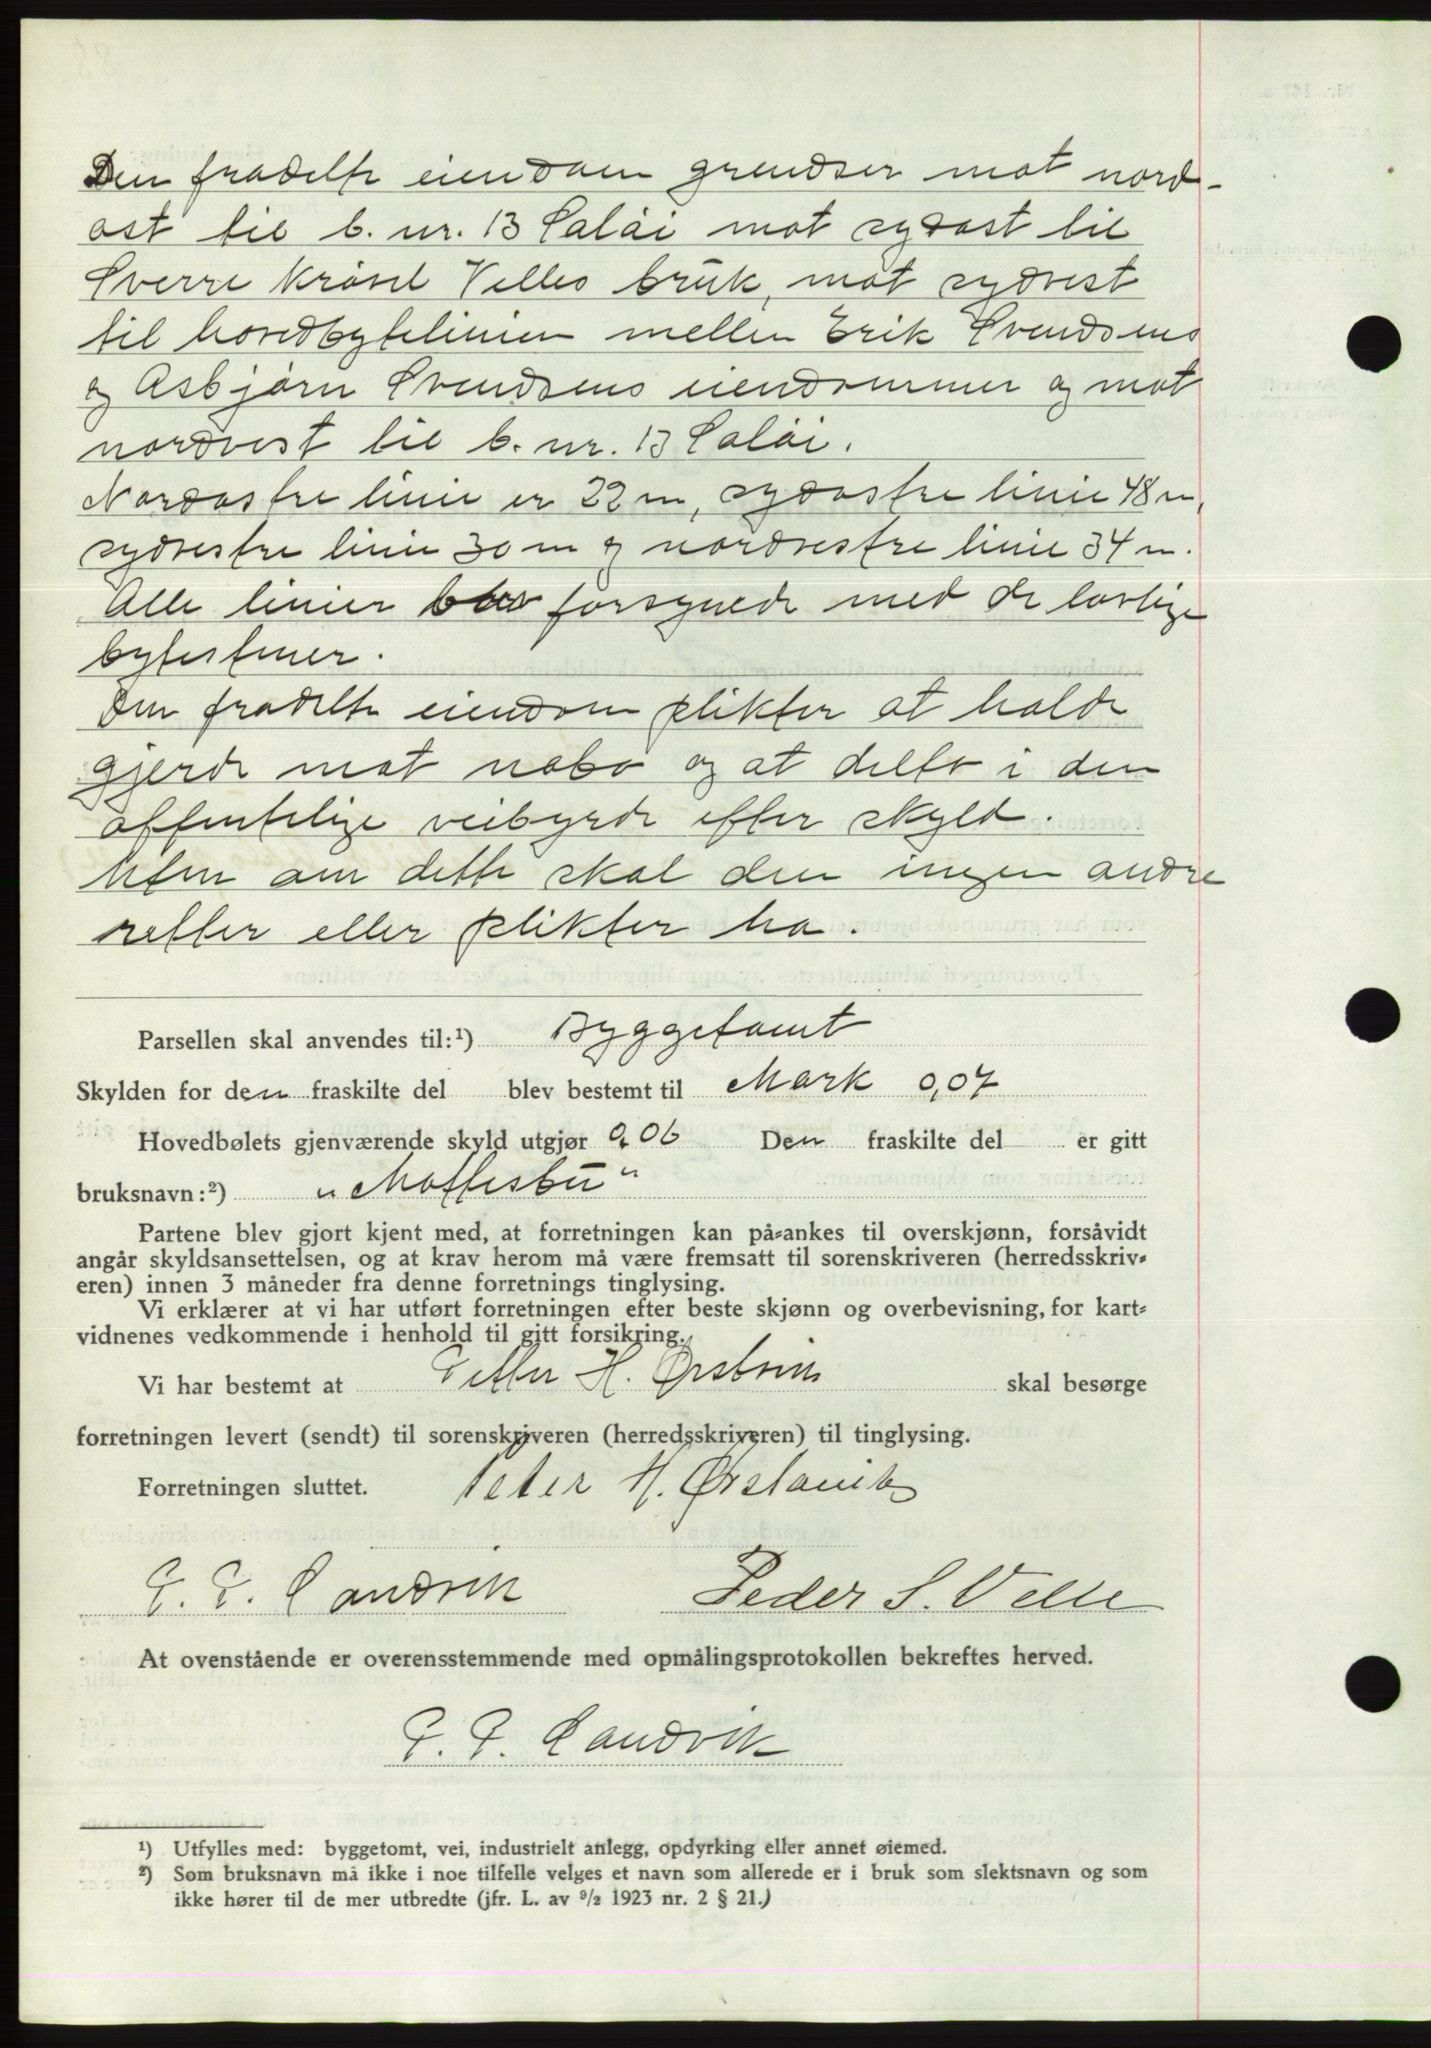 Den fradelte eiendom grendser mot nord-
ost til b. nr. 13 Solåi mot sydost til
Sverre Krøvel Velles bruk, mot sydvest
til hovedbytelinien mellem Erik Svendsens
og Asbjørn Svendsens eiendommer og mot
nordvest til b. nr. 13 Solåi.
Nordostre linie er 22 m, sydostre linie 48 m,
sydvestre linie 30 m og nordvestre linie 34 m.
Alle linier blev forsynede med de lovlige
bytestener.
Den fradelte eiendom plikter at holde
gjerde mot nabo og at delta i den
offentlige veibyrde efter skyld.
Uten om dette skal den ingen andre
retter eller plikter ha.
Parsellen skal anvendes til:¹) Byggetomt
Skylden for den fraskilte del blev bestemt til Mark 0,07
Hovedbølets gjenværende skyld utgjør 0,06 Den fraskilte del er gitt
bruksnavn:²) „Moltesbu“
Partene blev gjort kjent med, at forretningen kan på-ankes til overskjønn, forsåvidt
angår skyldsansettelsen, og at krav herom må være fremsatt til sorenskriveren (herredsskriv-
eren) innen 3 måneder fra denne forretnings tinglysing.
Vi erklærer at vi har utført forretningen efter beste skjønn og overbevisning, for kart-
vidnenes vedkommende i henhold til gitt forsikring.
Vi har bestemt at Petter H. Ørstavik skal besørge
forretningen levert (sendt) til sorenskriveren (herredsskriveren) til tinglysing.
Forretningen sluttet. Peter H. Ørstavik
P. P. Sandvik Peder S. Velle
At ovenstående er overensstemmende med opmålingsprotokollen bekreftes herved.
P. P. Sandvik
¹) Utfylles med: byggetomt, vei, industrielt anlegg, opdyrking eller annet øiemed.
²) Som bruksnavn må ikke i noe tilfelle velges et navn som allerede er i bruk som slektsnavn og som
ikke hører til de mer utbredte (jfr. L. av ⁹/₂ 1923 nr. 2 § 21.)